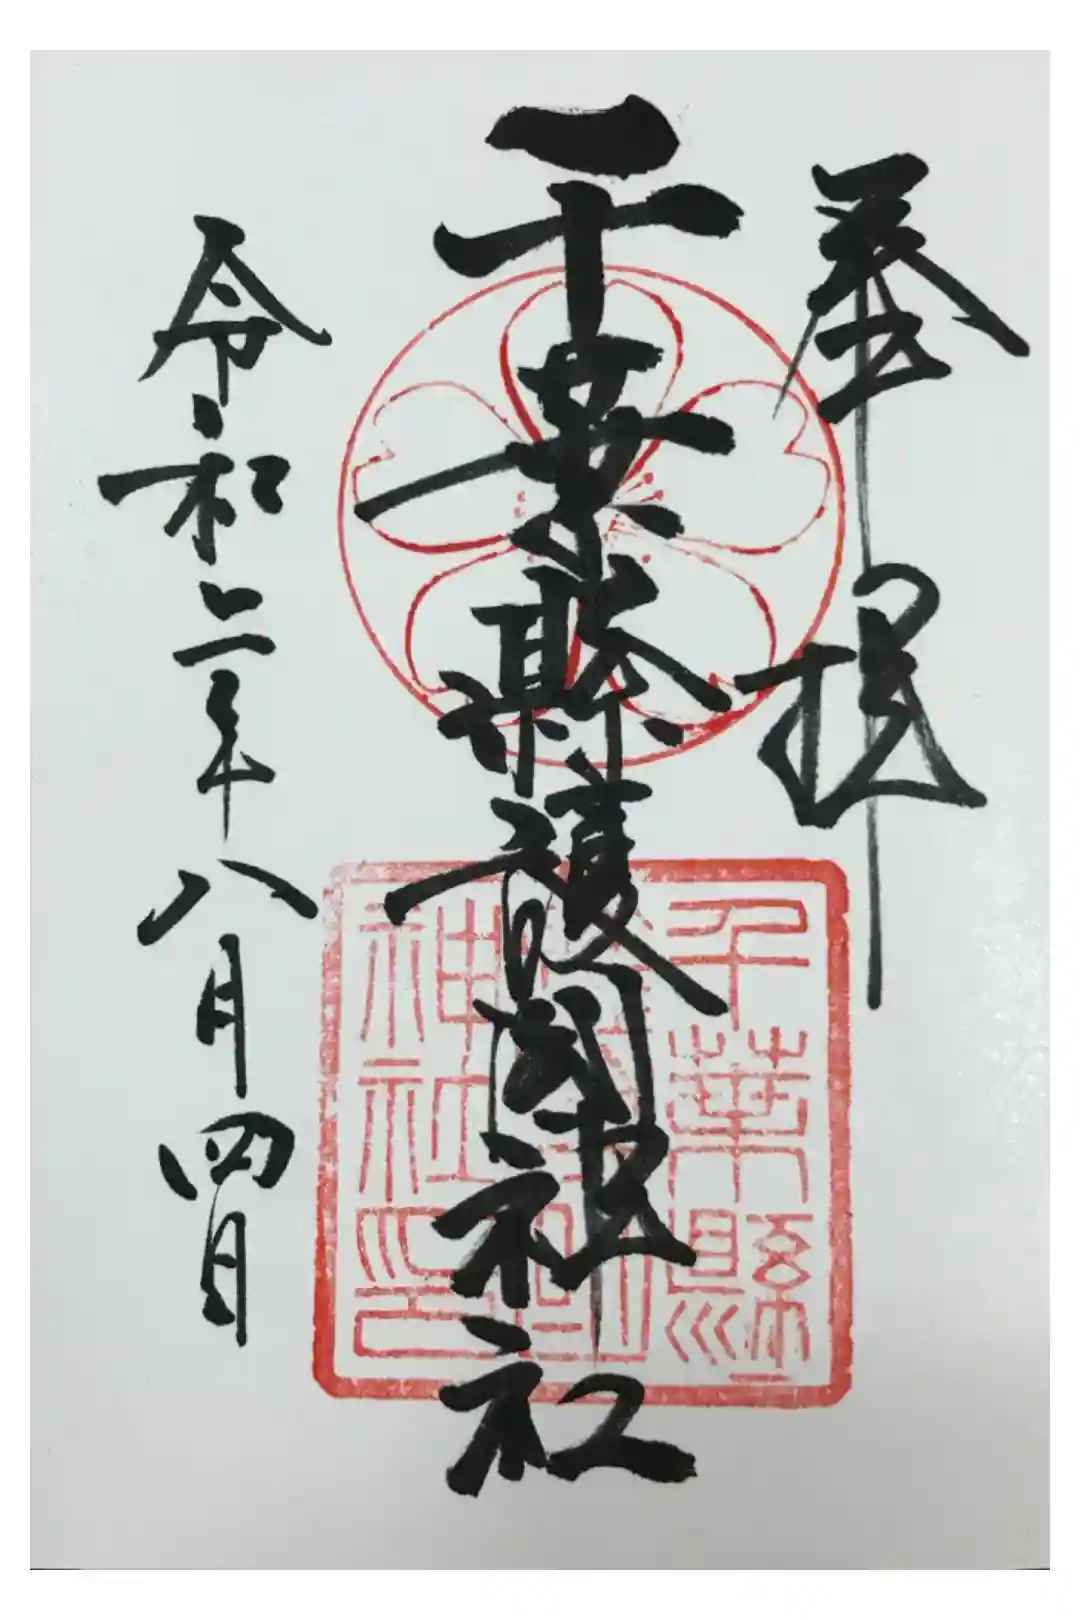 奉拝
千葉縣護國神社
令和二年八月四日
千葉縣
神社印